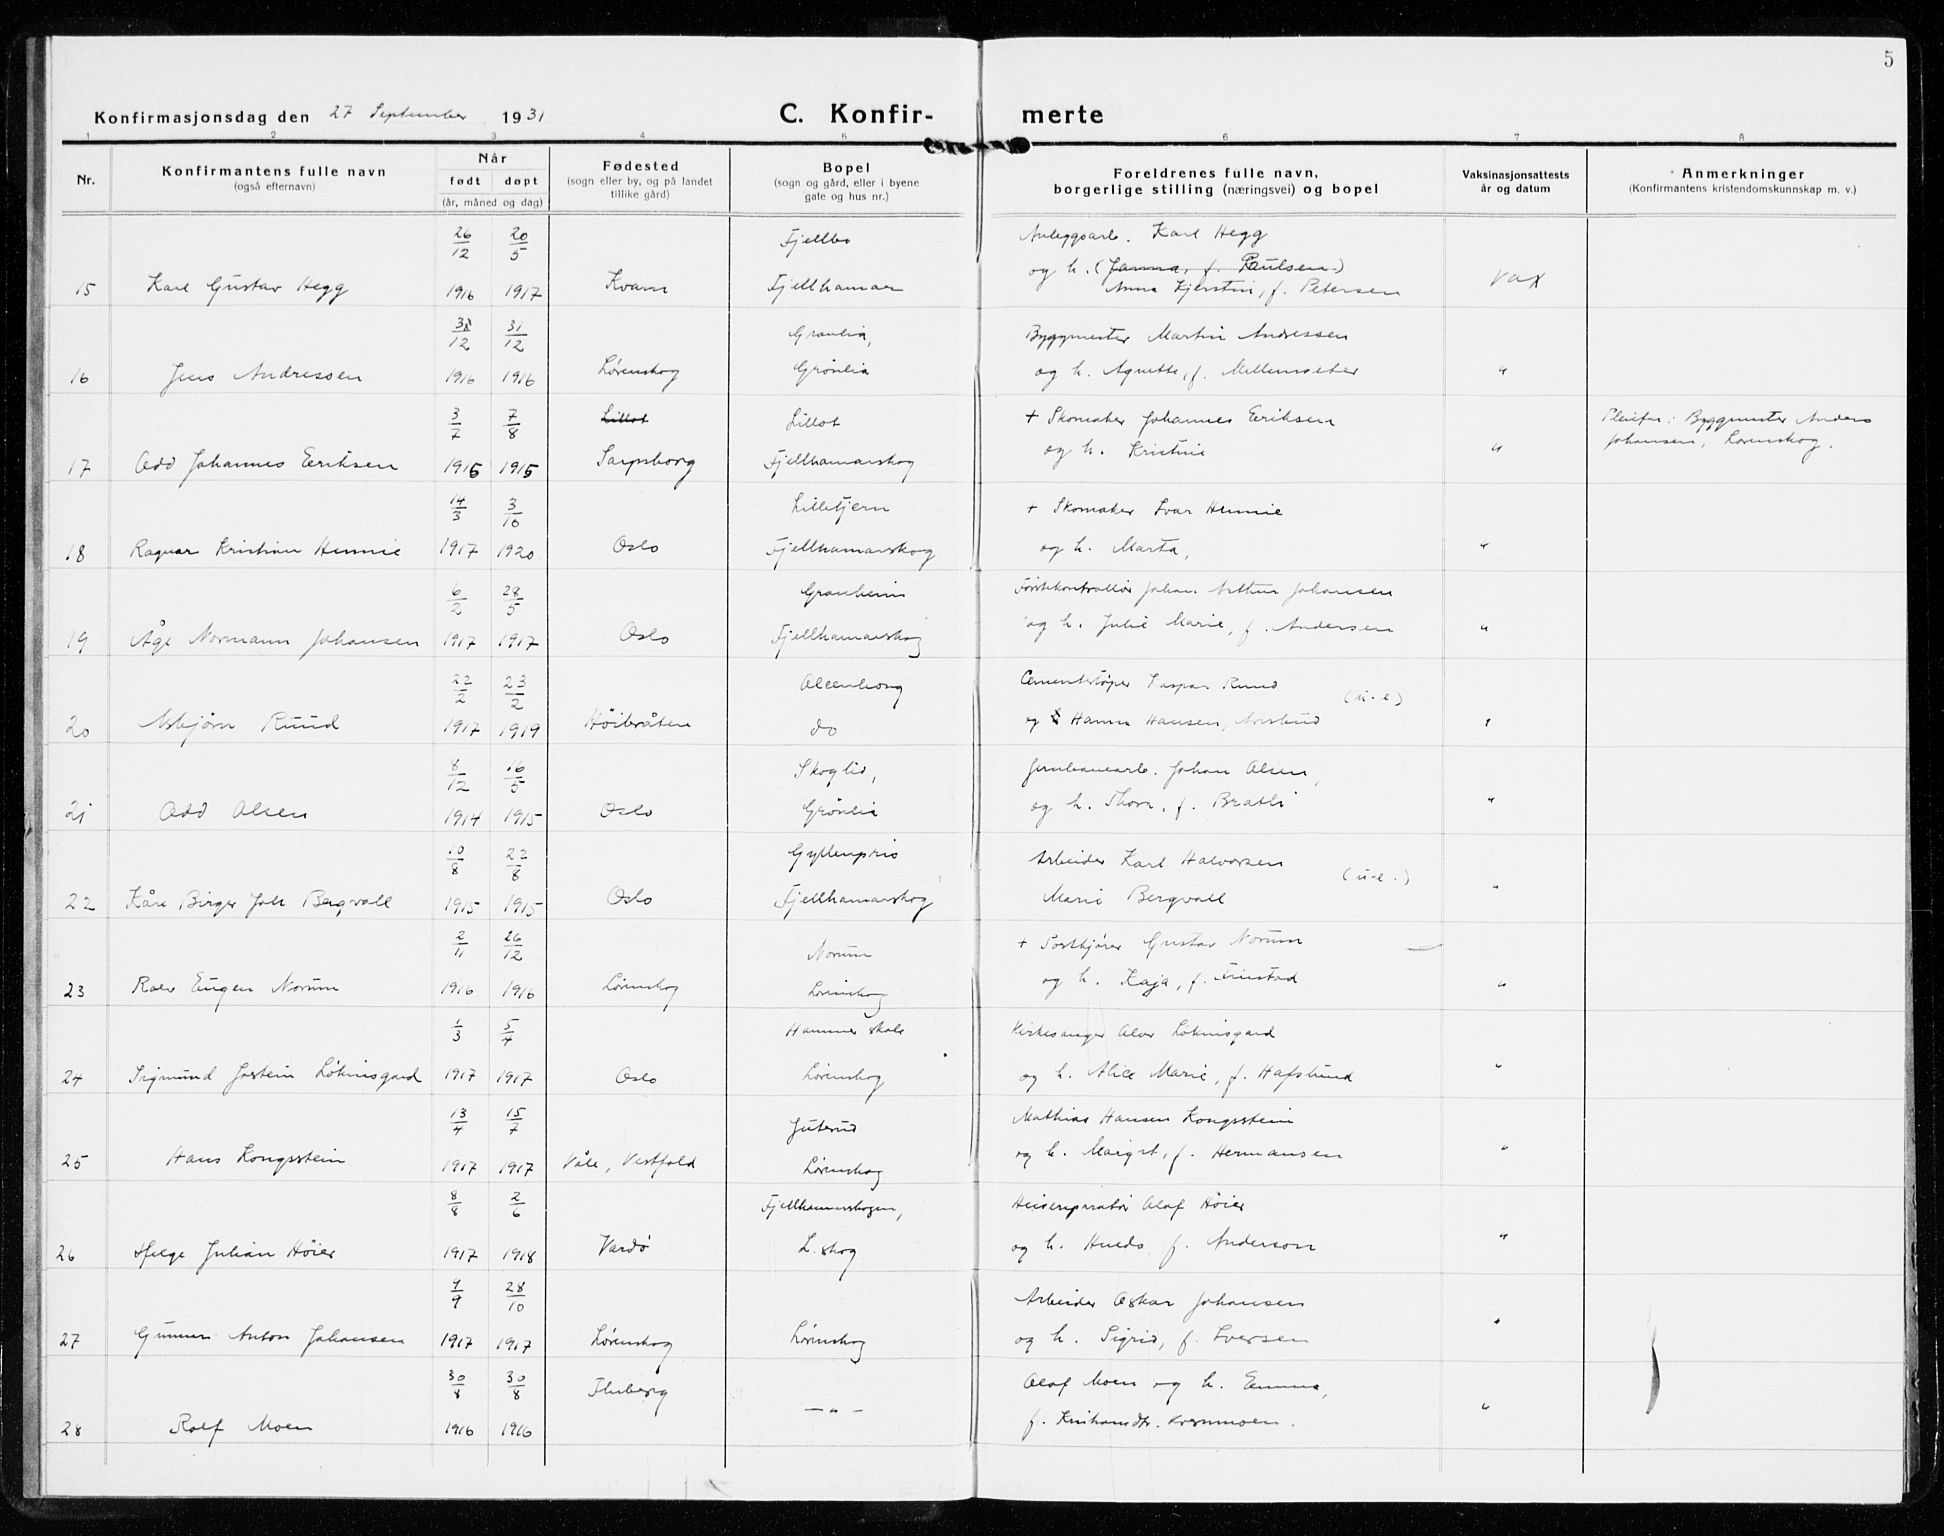 5
Konfirmasjonsdag den 27 September 1931
C. Konfir- merte
1 2 3 4 5 6 7 8
Nr.
Konfirmantens fulle navn
(også efternavn)
Når
født døpt
(år, måned og dag)
Fødested
(sogn eller by, og på landet
tillike gård)
Bopel
(sogn og gård, eller i byene
gate og hus nr.)
Foreldrenes fulle navn,
borgerlige stilling (næringsvei) og bopel
Vaksinasjonsattests
år og datum
Anmerkninger
(Konfirmantens kristendomskunnskap m. v.)
26/12 20/5 Fjellbo Anleggsarb. Karl Hegg
og h. (Janna, f. Paulsen.)
15 Karl Gustav Hegg 1916 1917 Kvam Fjellhamar Anna Kjerstin, f. Petersen vax
12 31/12 Granlia, Byggmester Martin Andressen
16 Jens Andressen 1916 1916 Lørenskog Grønlia og h. Agnette, f. Mellemseter "
3/7 7/8 Lillot Lillot + Skomaker Johannes Eeriksen Pleiefar: Byggmester Anders
17 Odd Johannes Eeriksen 1915 1915 Sarpsborg Fjellhamarskog og h. Kristine " Johansen, Lørenskog.
14/3 3/10 Lilletjern + Skomaker Ivar Hennie
18 Ragnar Kristian Hennie 1917 1920 Oslo Fjellhamarskog og h. Marta, "
6/2 28/5 Granheim Førstekontrollør Johan Arthur Johansen
19 Åge Normann Johansen 1917 1917 Oslo Fjellhamarskog og h. Julie Marie, f. Andersen "
22/2 23/2 Cementstøper Kaspar Ruud (u-e)
20 Asbjørn Ruud 1917 1919 Høibråten do og Hanna Hansen, "
8/12 16/5 Skoglid, Jernbanearb. Johan Olsen,
21 Odd Olsen 1914 1915 Oslo Grønlia og h. Thora, f. Bratli "
10/8 22/8 Gyllenpris Arbeider Karl Halvorsen (u-e.)
22 Kåre Birger Joh Bergvall 1915 1915 Oslo Fjellhamarskog Marie Bergvall "
2/11 26/12 Norum + Postkjører Gustav Norum
23 Rolv Eugen Norum 1916 1916 Lørenskog Lørenskog og h. Kaja, f. Finstad "
1/3 5/4 Hammer skole Kirkesanger Olav Løkinsgard
24 Sigmund Jostein Løkinsgard 1917 1917 Oslo Lørenskog og h. Alice Marie, f. Hafslund "
13/4 15/7 Juterud Mathias Hansen Kongsstein
25 Hans Kongsstein 1917 1917 Våle, Vestfold Lørenskog og h. Margit, f. Hermansen "
8/8 2/6 Fjellhamarskogen, Heisereparatør Olaf Høier
26 Helge Julian Høier 1917 1918 Vardø L.skog og h. Hulda f. Anderson "
9/9 28/10 Arbeider Oskar Johansen
27 Gunnar Anton Johansen 1917 1917 Lørenskog Lørenskog og h. Sigrid, f. Iversen "
30/8 30/8 Fluberg — " — Olaf Moen og h. Emma,
28 Rolf Moen 1916 1916 f. "